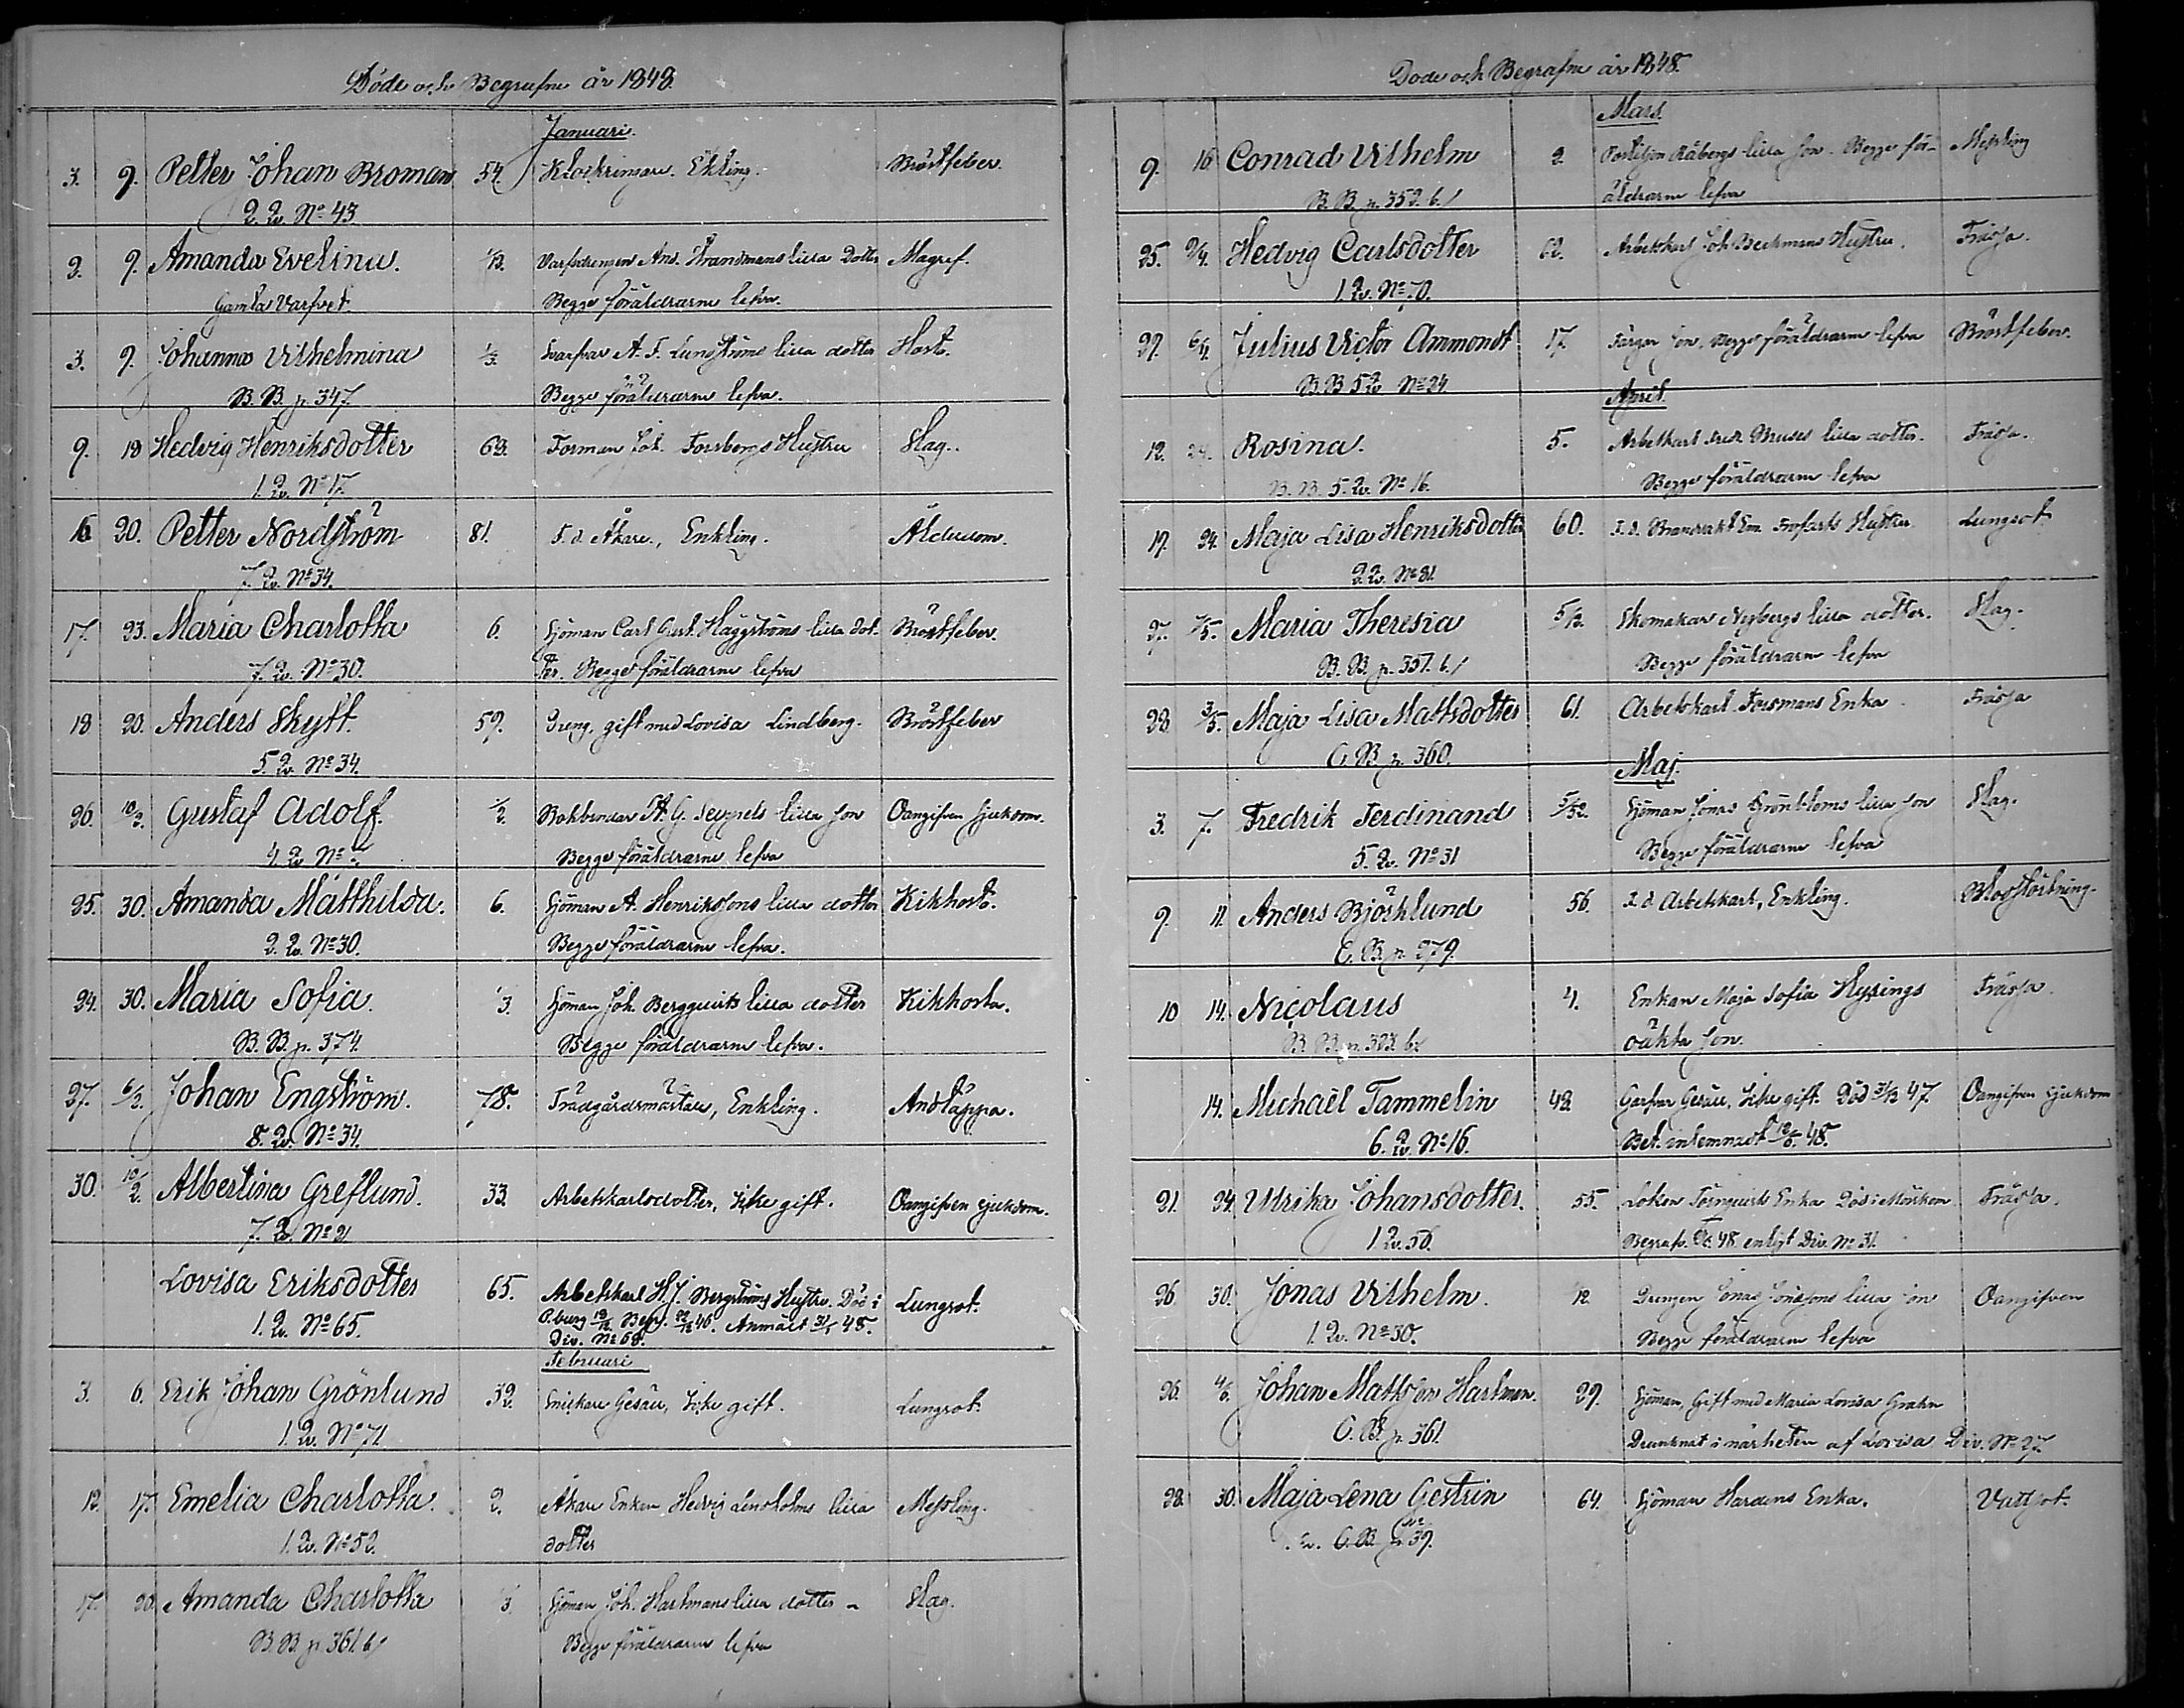 Döde och Begrafne år 1848.
Januari.
3. 9. Petter Johan Broman 54. Klockringare. Ekling. Bröstfeber.
2. Qv. No 43
2. 9. Amanda Evelina. 1/12. Varfsdrengen And. Strandmans lilla Dotter Magref.
Gamla Varfvet. Begge föräldrarne lefva.
3. 9. Johanna Vilhelmina 1/3. Svarfvar A. F. Lungströms lilla dotter Hosta.
B. B. p. 347. Begge föräldrarne lefva.
9. 13 Hedvig Henriksdotter 63. Forman Joh. Forsbergs Hustru Slag.
1. Qv. No 17.
16 20. Petter Nordström 81. F. d. Åkare, Enkling. Ålderdom.
7. Qv. No 34.
17. 23. Maria Charlotta 6. Sjöman Carl Gust. Häggströms lilla dot- Bröstfeber.
7. Qv. No 30. ter. Begge föräldrarne lefva
18 20. Anders Skytt. 59. Dreng, gift med Lovisa Lindberg. Bröstfeber
5. Qv. No 34.
26. 10/2. Gustaf Adolf. 1/2. Bokbindar A. G. Seppels lilla son Oangifven sjukdom.
4. Qv. No Begge föräldrarne lefva
25. 30. Amanda Mathilda. 6. Sjöman A. Henrikssons lilla dotter Kikhosta.
2. Qv. No 30. Begge föräldrarne lefva.
24. 30. Maria Sofia. 3. Sjöman Joh. Bergquists lilla dotter Kikhosta.
B. B. p. 374. Begge föräldrarne lefva.
27. 6/2. Johan Engström. 78. Trädgårdsmästare, Enkling. Andtäppa.
8. Qv. No 34.
30. 10/2. Albertina Greflund. 33. Arbetskarlsdotter, Icke gift. Oangifven sjukdom.
7. Qv. No 21
Lovisa Eriksdotter 65. Arbetskarl H. J. Bergströms Hustru. Död i Lungsot.
1. Qv. No 65. P.burg 19/12 Begr. 22/12 46. Anmält 31/1 48.
Div. No 68.
Februari
3. 6. Erik Johan Grönlund 32. Snickare Gesäll, Icke gift. Lungsot.
1. Qv. No 71
12. 17. Emelia Charlotta. 2. Åkare Enkan Hedvig Lindholms lilla Messling.
1. Qv. No 52. dotter
17. 20 Amanda Charlotta 3. Sjöman Joh. Hartmans lilla dotter - Slag.
B. B. p. 361. b/ Begge föräldrarne lefva
Döde och Begrafne år 1848.
Mars.
9. 16 Conrad Vilhelm 2. Postiljon Råbergs lilla son. Begge för- Messling
B. B. p. 352. b/ äldrarne lefva
25. 2/4. Hedvig Carlsdotter 62. Arbetskarl Joh. Beckmans Hustru. Frässa.
1. Qv. No 70.
29. 6/4. Julius Victor Ammondt 17. Färgar son, Begge föräldrarne lefva Bröstfeber.
B. B. 5 Qv No 24.
April.
12. 24. Rosina. 5. Arbetkarl Fredr. Bruses lilla dotter. Frässa.
B. B. 5. Qv. No 16. Begge föräldrarne lefva
19. 24. Maja Lisa Henriksdotter 60. F. d. Brandvakt Em. Hustru. Lungsot
2. Qv. No 81.
27. 7/5. Maria Theresia 5/12. Skomakar Nybergs lilla dotter. Slag.
B. B. p. 357. b/ Begge föräldrarne lefva
28 3/5. Maja Lisa Mattsdotter 61. Arbetskarl Forsmans Enka. Frässa
C. B. p. 360.
Maj.
3. 7. Fredrik Ferdinand 5/52. Sjöman Jonas Grönbloms lilla son Slag.
5. Qv. No 31 Begge föräldrarne lefva
9. 11. Anders Björklund 56. F. d. Arbetskarl, Enkling. Blodstörtning.
C. B. p. 279.
10 14. Nicolaus 4. Enkan Maja Sofia Hysings Frässa.
B. B. p. 323. b/ oäkta son.
14. Michaël Tammelin 42. Garfvar Gesäll, Icke gift. Död 31/12 47. Oangifven sjukdom
6. Qv. No 16. Bet. inlemnadt 12/5. 48.
21. 24. Ulrika Johansdotter. 55. Lotsen Törnquists Enka Död i Mörskom Frässa.
1. Qv. 56. Begrafv. 48. enligt Div. No 31.
26. 30. Jonas Vilhelm. 12. Drengen Jonas Jonassons lilla son Oangifven
1. Qv. No 30. Begge föräldrarne lefva
26. 4/6. Johan Mattsson Hartman. 29. Sjöman, Gift med Maria Lovisa Grahn
C. B. p. 361. Drunknat i närheten af Lovisa Div. No 27.
28. 30. Maja Lena Gestrin 64. Sjöman Hardens Enka. Vattsot.
Qv. C. B. No 39.